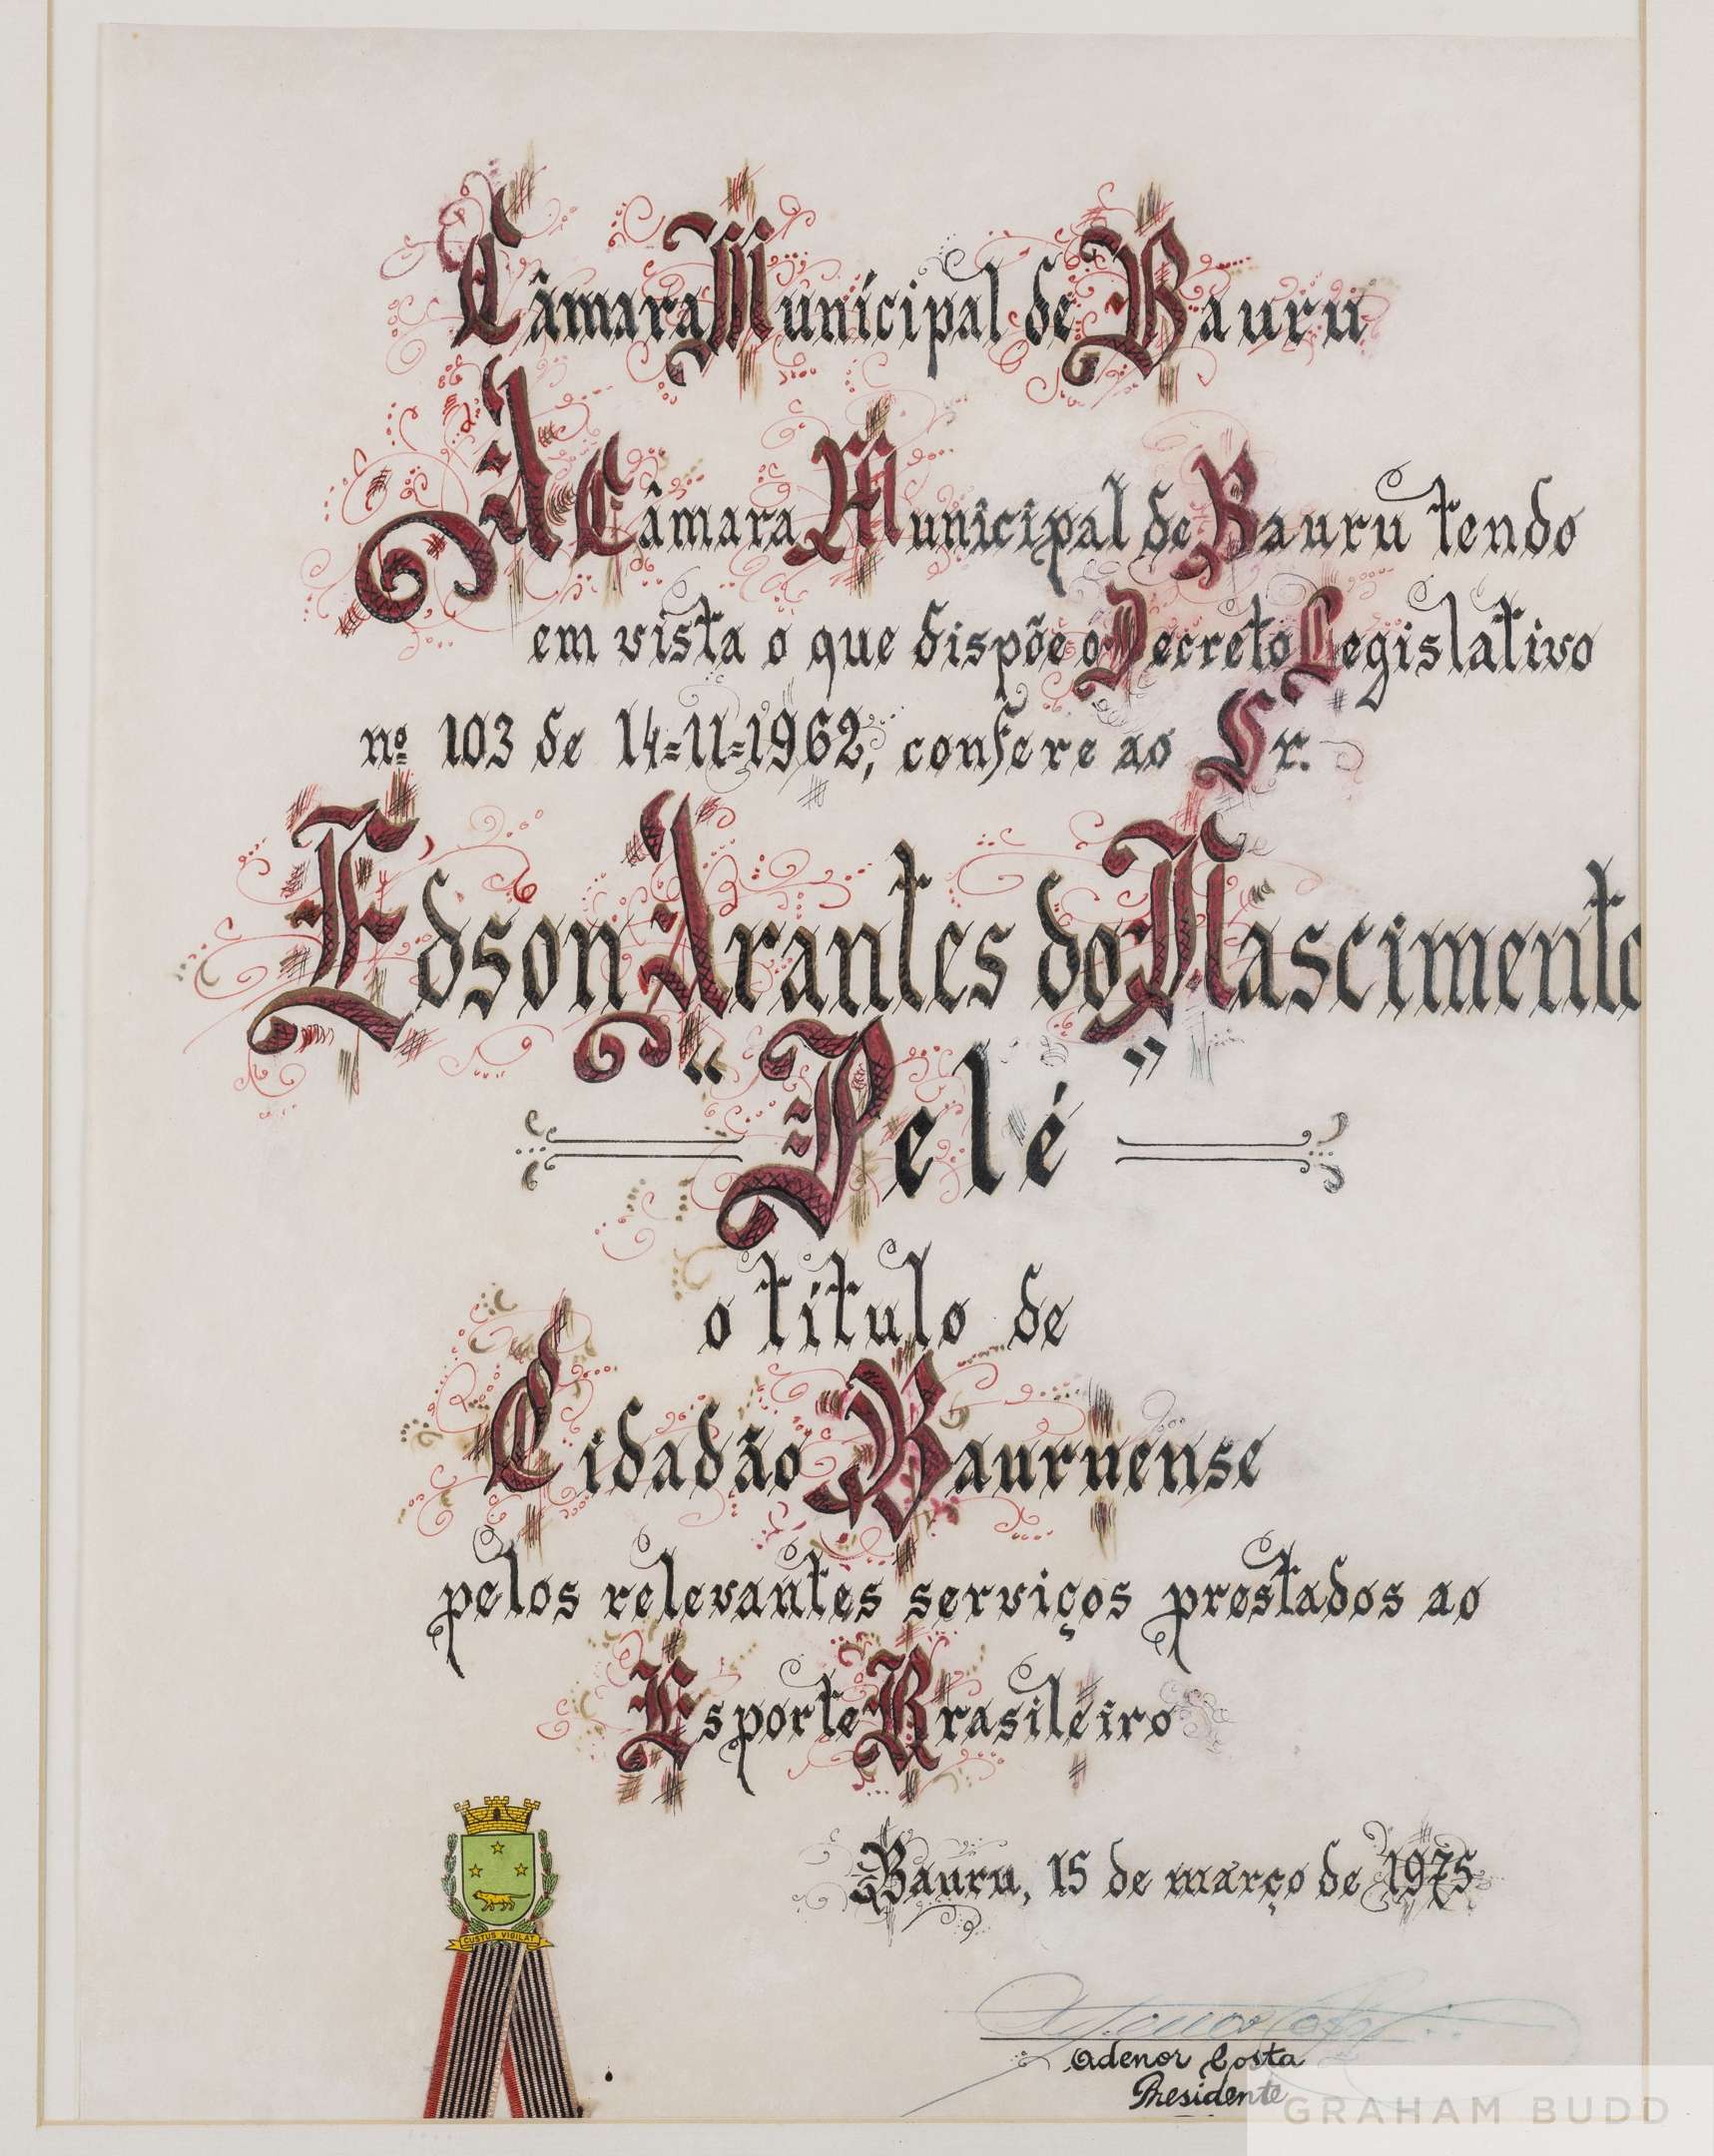 Câmara Municipal de Bauru
A Câmara Municipal de Bauru tendo
em vista o que dispõe o Decreto Legislativo
nº 103 de 14=11=1962, confere ao Sr.
Edson Arantes do Nascimento
"Pelé"
o título de
Cidadão Bauruense
pelos relevantes serviços prestados ao
Esporte Brasileiro
CUSTUS VIGILAT
Bauru, 15 de março de 1975
Adenor Costa
Presidente
GRAHAM BUDD